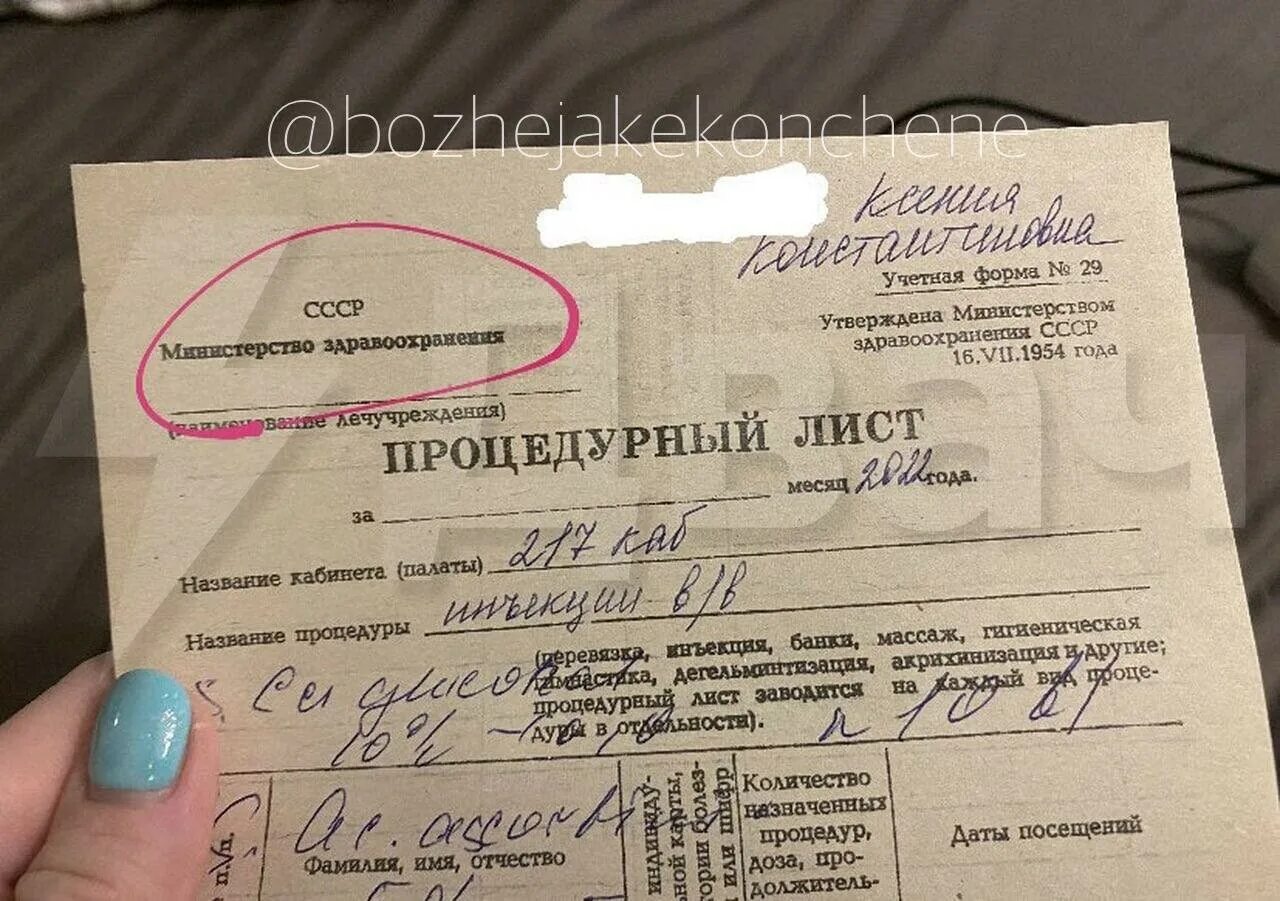 @bozhejakekonchene
Ксения
Константиновна
Учетная форма № 29
СССР
Министерство здравоохранения
Утверждена Министерством
здравоохранения СССР
16.VII.1954 года
(наименование лечучреждения)
ПРОЦЕДУРНЫЙ ЛИСТ
за месяц 2022 года.
Название кабинета (палаты) 217 каб
Название процедуры инъекции в/в
(перевязка, инъекция, банки, массаж, гигиеническая
гимнастика, дегельминтизация, акрихинизация и другие;
процедурный лист заводится на каждый вид проце-
дуры в отдельности).
S. Ca gluconat
10% - 10,0 n 10 в/в
Ac. ascorbin
№ п/п.
Фамилия, имя, отчество
индивиду-
ной карты,
тории болез-
или шифр
Количество
назначенных
процедур,
доза, про-
должитель-
Даты посещений
5%
Двач